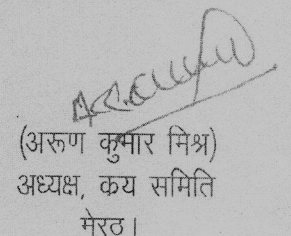 (अरूण कुमार मिश्र)
अध्यक्ष, कय समिति
मेरठ।